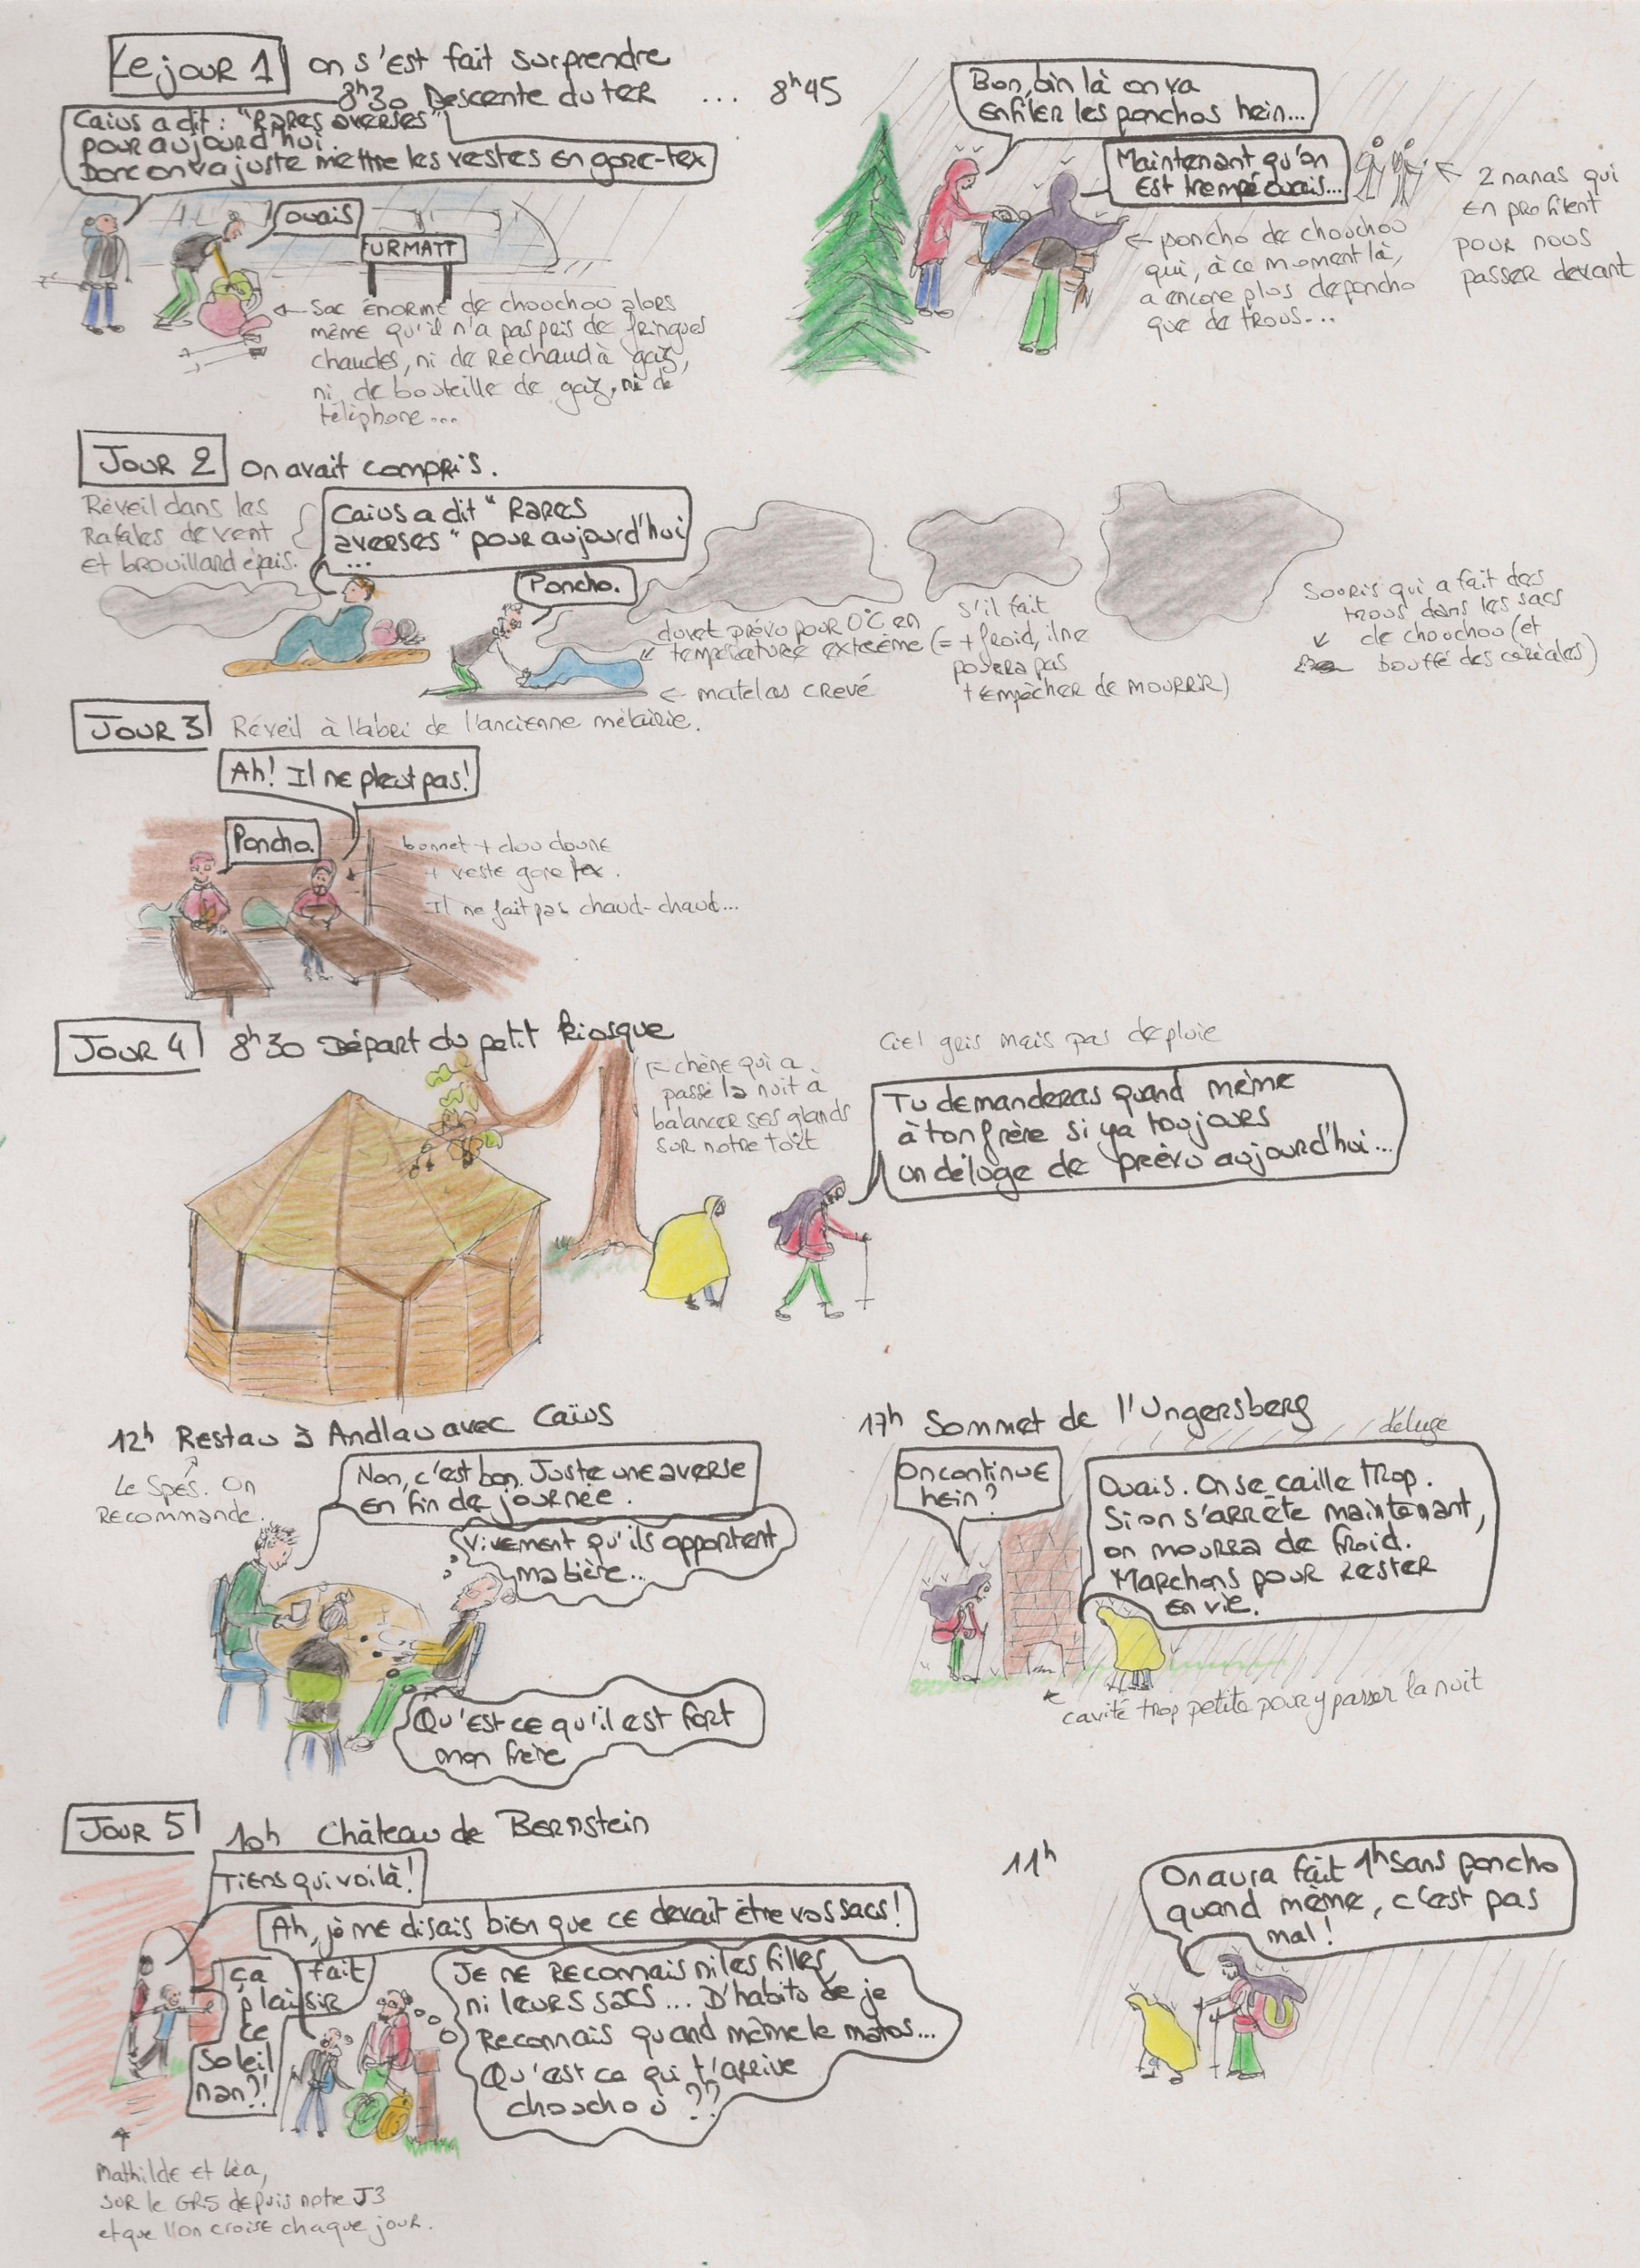 Le jour 1 on s'est fait surprendre
8h30 Descente du TER ... 8h45
Caius a dit : "Rares averses"
pour aujourd'hui.
Donc on va juste mettre les vestes en gore-tex
ouais
URMATT
← Sac énorme de chouchou alors
même qu'il n'a pas pris de fringues
chaudes, ni de réchaud à gaz,
ni de bouteille de gaz, ni de
téléphone...
Bon, bin là on va
enfiler les ponchos hein...
Maintenant qu'on
est trempé ouais...
← 2 nanas qui
en profitent
pour nous
passer devant
← poncho de chouchou
qui, à ce moment là,
a encore plus de poncho
que de trous...
Jour 2 on avait compris.
Réveil dans les
Rafales de vent
et brouillard épais.
Caius a dit "Rares
averses" pour aujourd'hui
...
Poncho.
duvet prévu pour 0°C en
température extrême (= s'il fait
+ froid, il ne
pourra pas
t'empêcher de mourrir)
← matelas crevé
Souris qui a fait des
trous dans les sacs
de chouchou (et
bouffé des céréales)
Jour 3 Réveil à l'abri de l'ancienne métairie.
Ah! Il ne pleut pas!
Poncho.
bonnet + doudoune
+ veste gore tex.
Il ne fait pas chaud-chaud...
Jour 4 8h30 Départ du petit kiosque
← chêne qui a
passé la nuit à
balancer ses glands
sur notre toît
Ciel gris mais pas de pluie
Tu demanderas quand même
à ton frère si ya toujours
un déluge de prévu aujourd'hui...
12h Restau à Andlau avec Caïus
Le Spés. On
recommande.
Non, c'est bon. Juste une averse
en fin de journée.
Vivement qu'ils apportent
ma bière...
Qu'est ce qu'il est fort
mon frère
17h Sommet de l'Ungersberg
déluge
On continue
hein?
Ouais. On se caille trop.
Si on s'arrête maintenant,
on mourra de froid.
Marchons pour rester
en vie.
cavité trop petite pour y passer la nuit
Jour 5 10h Château de Bernstein
Tiens qui voilà!
Ah, je me disais bien que ce devait être vos sacs!
ça fait
plaisir
ce
soleil
nan?!
Je ne reconnais ni les filles,
ni leurs sacs... D'habitude je
reconnais quand même le matos...
Qu'est ce qui t'arrive
chouchou ??
Mathilde et Léa,
sur le GR5 depuis notre J3
et que l'on croise chaque jour.
11h
On aura fait 1h sans poncho
quand même, c'est pas
mal!